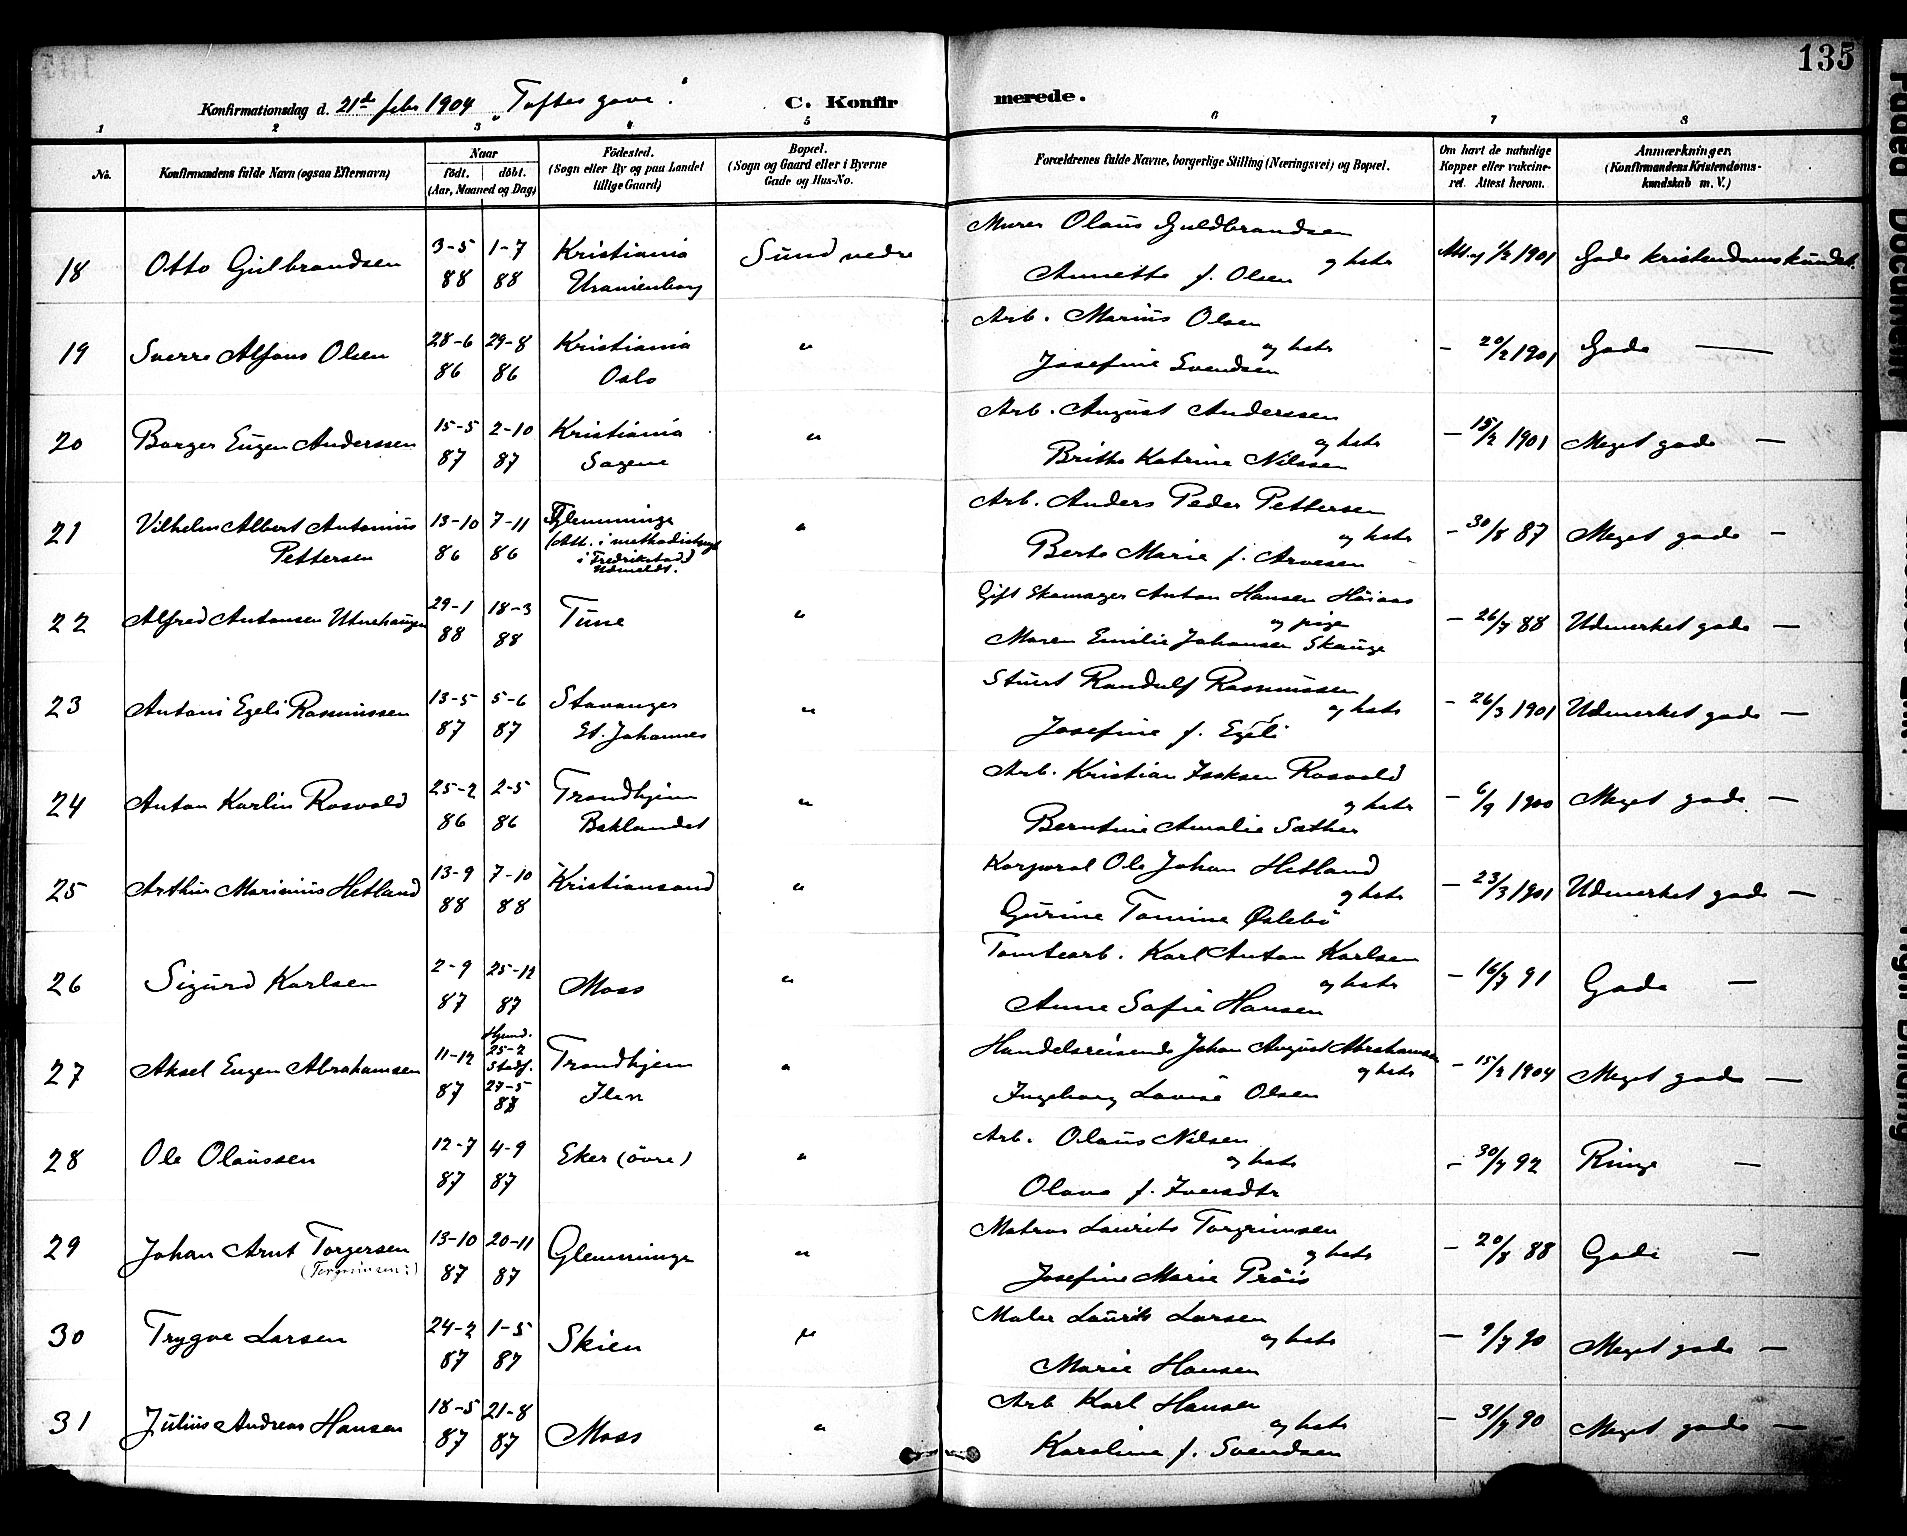 135
Konfirmationsdag d. 21de febr 1904 "Toftes gave".
C. Konfirmerede.
1 2 3 4 5 6 7 8
No.
Konfirmandens fulde Navn (ogsaa Efternavn)
Naar
födt. döbt.
(Aar, Maaned og Dag)
Födested.
(Sogn eller By og paa Landet
tillige Gaard)
Bopæl.
(Sogn og Gaard eller i Byerne
Gade og Hus-No.
Forældrenes fulde Navne, borgerlige Stilling (Næringsvei) og Bopæl.
Om havt de naturlige
Kopper eller vakcine-
ret. Attest herom.
Anmærkninger.
(Konfirmandens Kristendoms-
kundskab m. V.)
18 Otto Gulbrandsen 3-5 88 1-7 88 Kristiania Uranienborg Sund nedre
Murer Olaus Guldbrandsen
og hst
Annette f. Olsen
Att. af 1/2 1901 Gode kristendomskundsk.
19 Sverre Alfons Olsen 28-6 86 29-8 86 Kristiania Oslo "
Arb. Marius Olsen
og hst
Josefine Svendsen
- 20/2 1901 Gode —
20 Borger Eugen Anderssen 15-5 87 2-10 87 Kristiania Sagene "
Arb. August Anderssen
og hst
Britha Katrine Nilssen
- 15/2 1901 Meget gode —
21 Vilhelm Albert Antonius
Pettersen 13-10 86 7-11 86 Glemminge
(Att. i methodistmgt
i Fredrikstad)
Udmeldt. "
Arb. Anders Peder Pettersen
og hst
Berte Marie f. Arvesen
- 30/8 87 Meget gode —
22 Alfred Antonsen Utnehaugen 29-1 88 18-3 88 Tune "
Gift Skomager Anton Hansen Höiaas
og pige
Maren Emilie Johansen Skauge
- 26/7 88 Udmerket gode —
23 Antoni Egeli Rasmussen 13-5 87 5-6 87 Stavanger St. Johannes "
Stuert Randulf Rasmussen
og hst
Josefine f. Egeli
- 26/3 1901 Udmerket gode —
24 Anton Karlin Rosvold 25-2 86 2-5 86 Trondhjem Baklandet "
Arb. Kristian Isaksen Rosvold
og hst
Berntine Amalie Sæther
- 6/9 1900 Meget gode —
25 Arthur Marinius Hetland 13-9 88 7-10 88 Kristiansand "
Korporal Ole Johan Hetland
og hst
Gurine Tomine Øslebö
- 23/3 1901 Udmerket gode —
26 Sigurd Karlsen 2-9 87 25-12 87 Moss "
Tomtearb. Karl Anton Karlsen
og hst
Anne Sofie Hansen
- 16/7 91 Gode —
27 Aksel Eugen Abrahamsen 11-12 87 Hjemd. 25-2 Stadf. 27-5 88 Trondhjem Ilen "
Handelsreisende Johan August Abrahamsen
og hst
Ingeborg Lovise Olsen
- 15/2 1904 Meget gode —
28 Ole Olaussen 12-7 87 4-9 87 Eker (övre) "
Arb. Olaus Nilsen
og hst
Olava f. Iversdtr
- 30/7 92 Ringe —
29 Johan Arnt Torgersen
(Torgrimsen:) 13-10 87 20-11 87 Glemminge "
Matros Laurits Torgrimsen
og hst
Josefine Marie Pröis
- 20/8 88 Gode —
30 Trygve Larsen 24-2 87 1-5 87 Skien "
Maler Laurits Larsen
og hst
Marie Hansen
- 9/7 90 Meget gode —
31 Julius Andreas Hansen 18-5 87 21-8 87 Moss "
Arb Karl Hansen
og hst
Karoline f. Svendsen
- 31/7 90 Meget gode —